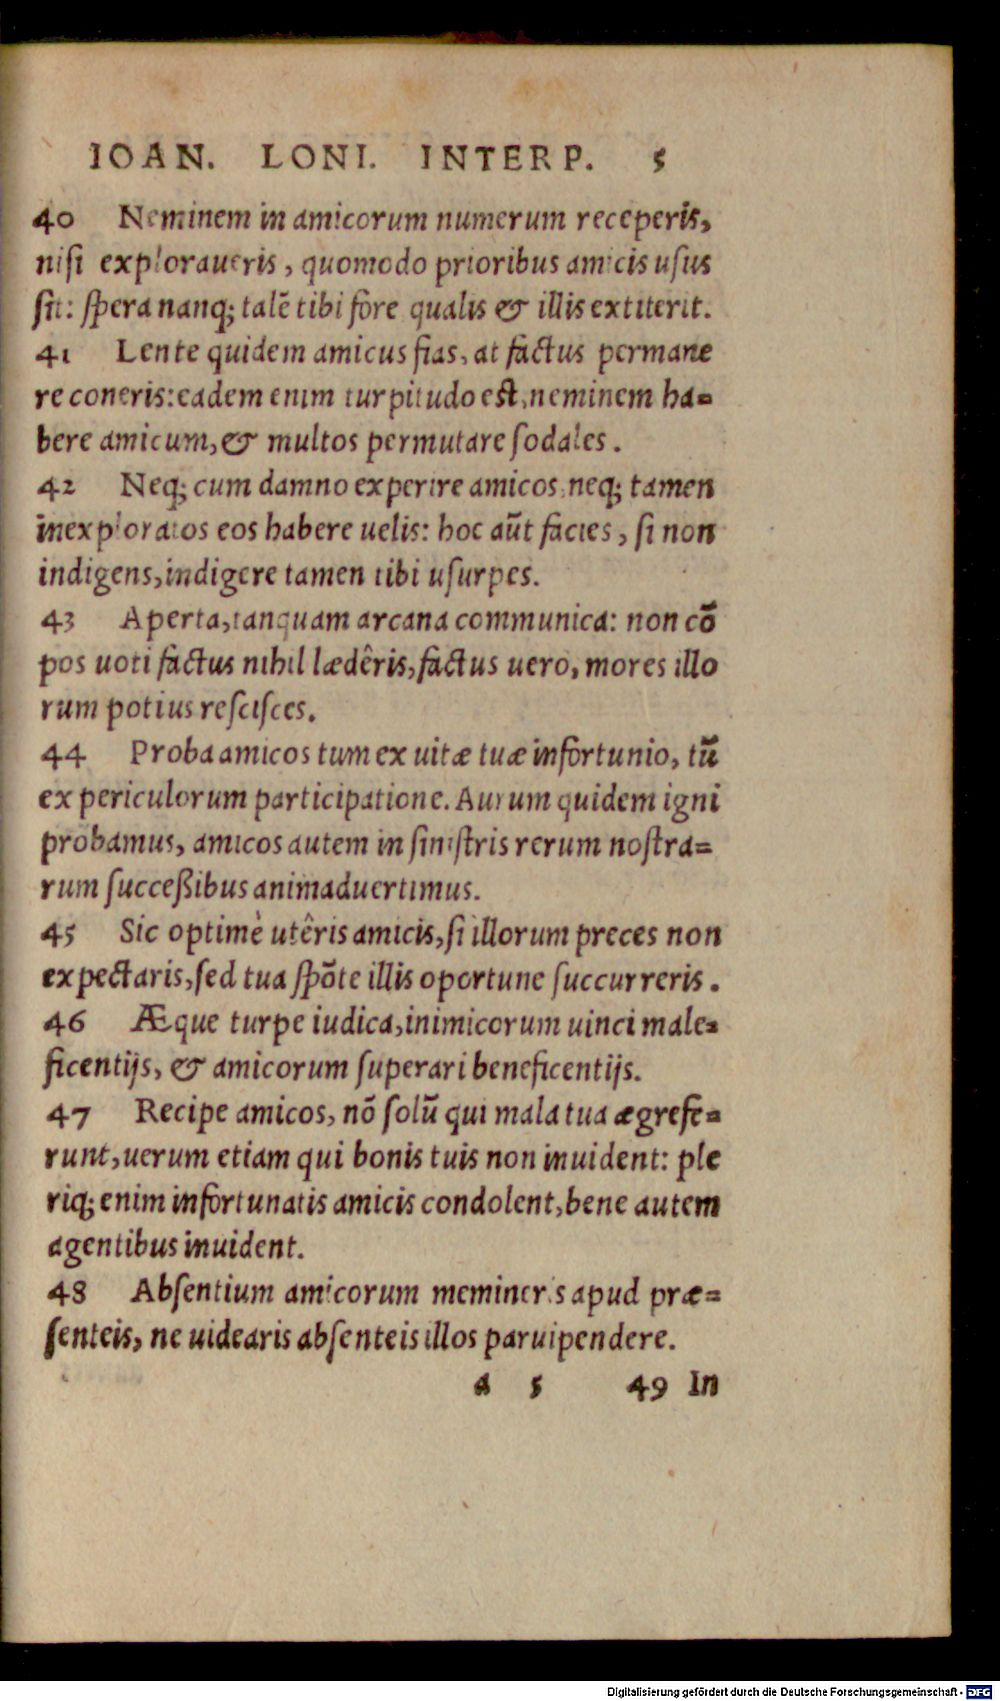 IOAN. LONI. INTERP. 5
40 Neminem in amicorum numerum receperis,
nisi exploraueris, quomodo prioribus amicis usus
sit: spera nanq; talē tibi fore qualis & illis extiterit.
41 Lente quidem amicus fias, at factus permane
re coneris: eadem enim turpitudo est, neminem ha=
bere amicum, & multos permutare sodales.
42 Neq; cum damno experire amicos, neq; tamen
inexploratos eos habere uelis: hoc aūt facies, si non
indigens, indigere tamen tibi usurpes.
43 Aperta, tanquam arcana communica: non cō
pos uoti factus nihil lædêris, factus uero, mores illo
rum potius rescisces.
44 Proba amicos tum ex uitæ tuæ infortunio, tū
ex periculorum participatione. Aurum quidem igni
probamus, amicos autem in sinistris rerum nostra=
rum succeßibus animaduertimus.
45 Sic optimè utêris amicis, si illorum preces non
expectaris, sed tua spōte illis oportune succurreris.
46 Æque turpe iudica, inimicorum uinci male=
ficentijs, & amicorum superari beneficentijs.
47 Recipe amicos, nō solū qui mala tua ægrefe=
runt, uerum etiam qui bonis tuis non inuident: ple
riq; enim infortunatis amicis condolent, bene autem
agentibus inuident.
48 Absentium amicorum memineris apud præ=
senteis, ne uidearis absenteis illos paruipendere.
a 5 49 In
Digitalisierung gefördert durch die Deutsche Forschungsgemeinschaft - DFG